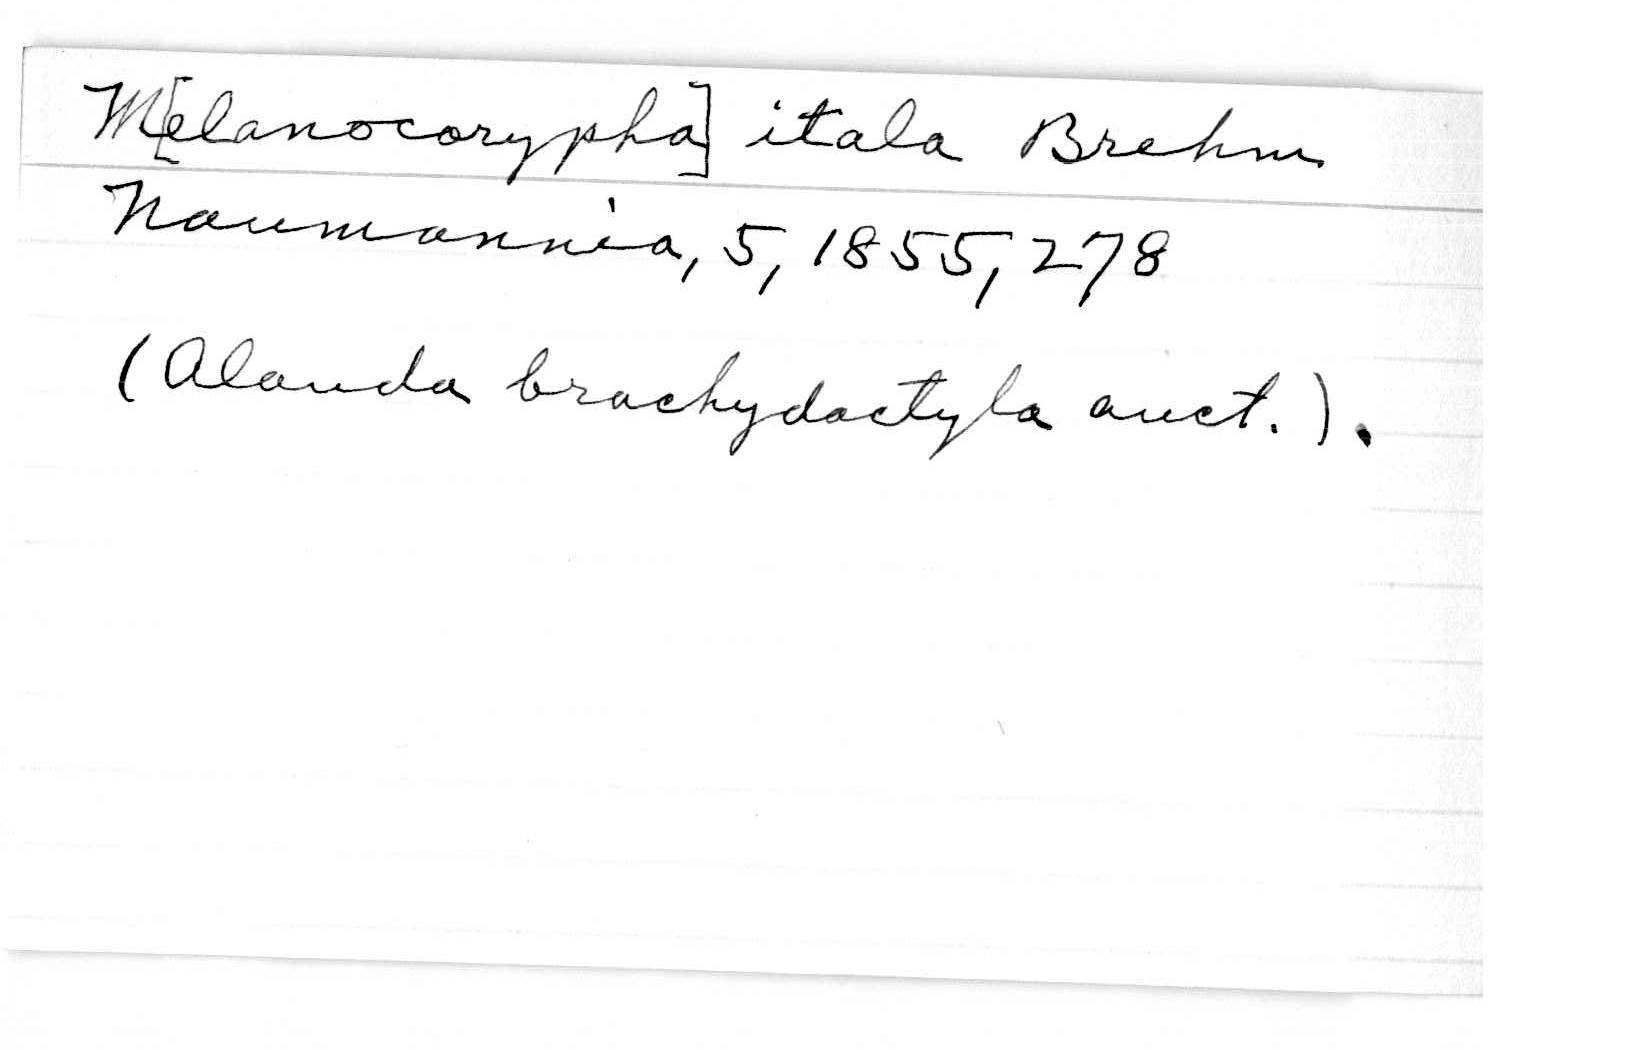 M[elanocorypha] itala Brehm
Naumannia, 5, 1855, 278
(Alauda brachydactyla auct.).